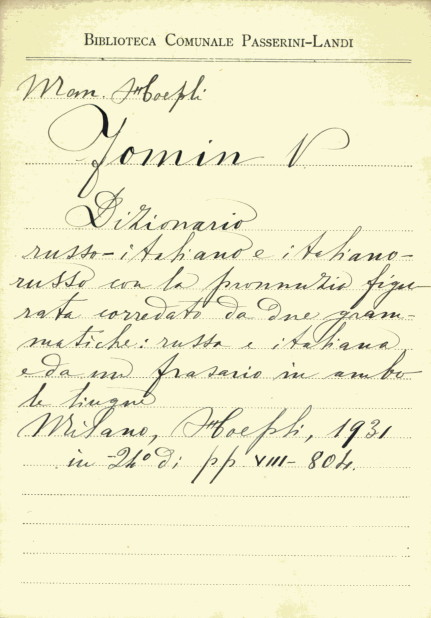 BIBLIOTECA COMUNALE PASSERINI-LANDI
Man. Hoepli
Fomin V
Dizionario
russo-italiano e italiano-
russo con la pronunzia figu-
rata corredato da due gram-
matiche: russa e italiana
e da un frasario in ambo
le lingue
Milano, Hoepli, 1931
in-24° di pp. VIII-804.